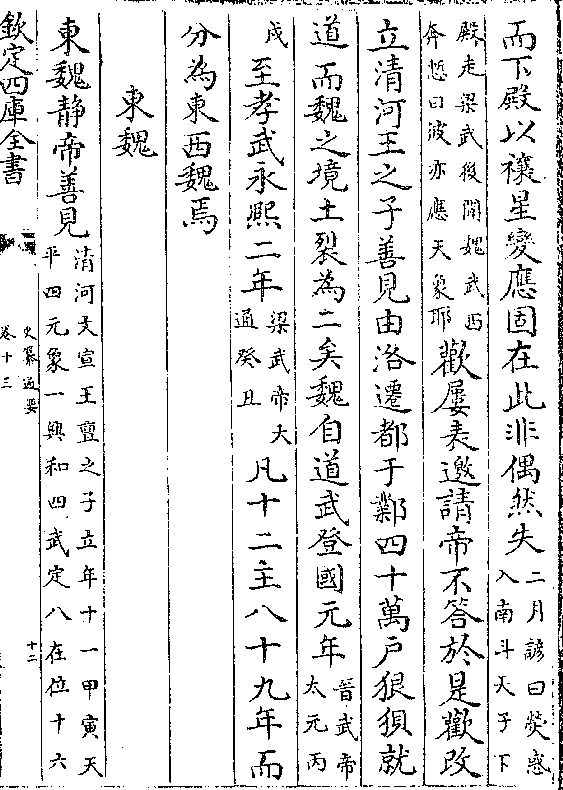 而下殿以禳星變應固在此非偶然矢二月諺曰熒惑入南斗天子下
殿走梁武後聞魏武西奔慙曰彼亦應天象耶歡屢表邀請帝不答於是歡改
立清河王之子善見由洛遷都于鄴四十萬戶狼狽就
道而魏之境土裂為二矣魏自道武登國元年晉武帝太元丙
戌至孝武永熙二年梁武帝大通癸丑凡十二主八十九年而
分為東西魏焉
東魏
東魏靜帝善見清河文宣王亶之子立年十一甲寅天平四元象一興和四武定八在位十六
欽定四庫全書
史纂通要
卷十三
十二